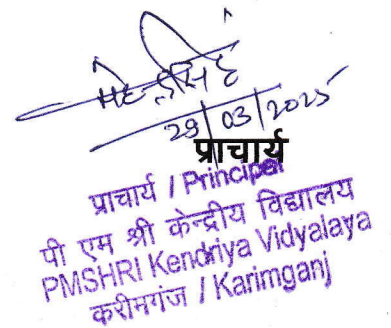 29/03/2025
प्राचार्य
प्राचार्य / Principal
पी एम श्री केन्द्रीय विद्यालय
PMSHRI Kendriya Vidyalaya
करीमगंज / Karimganj